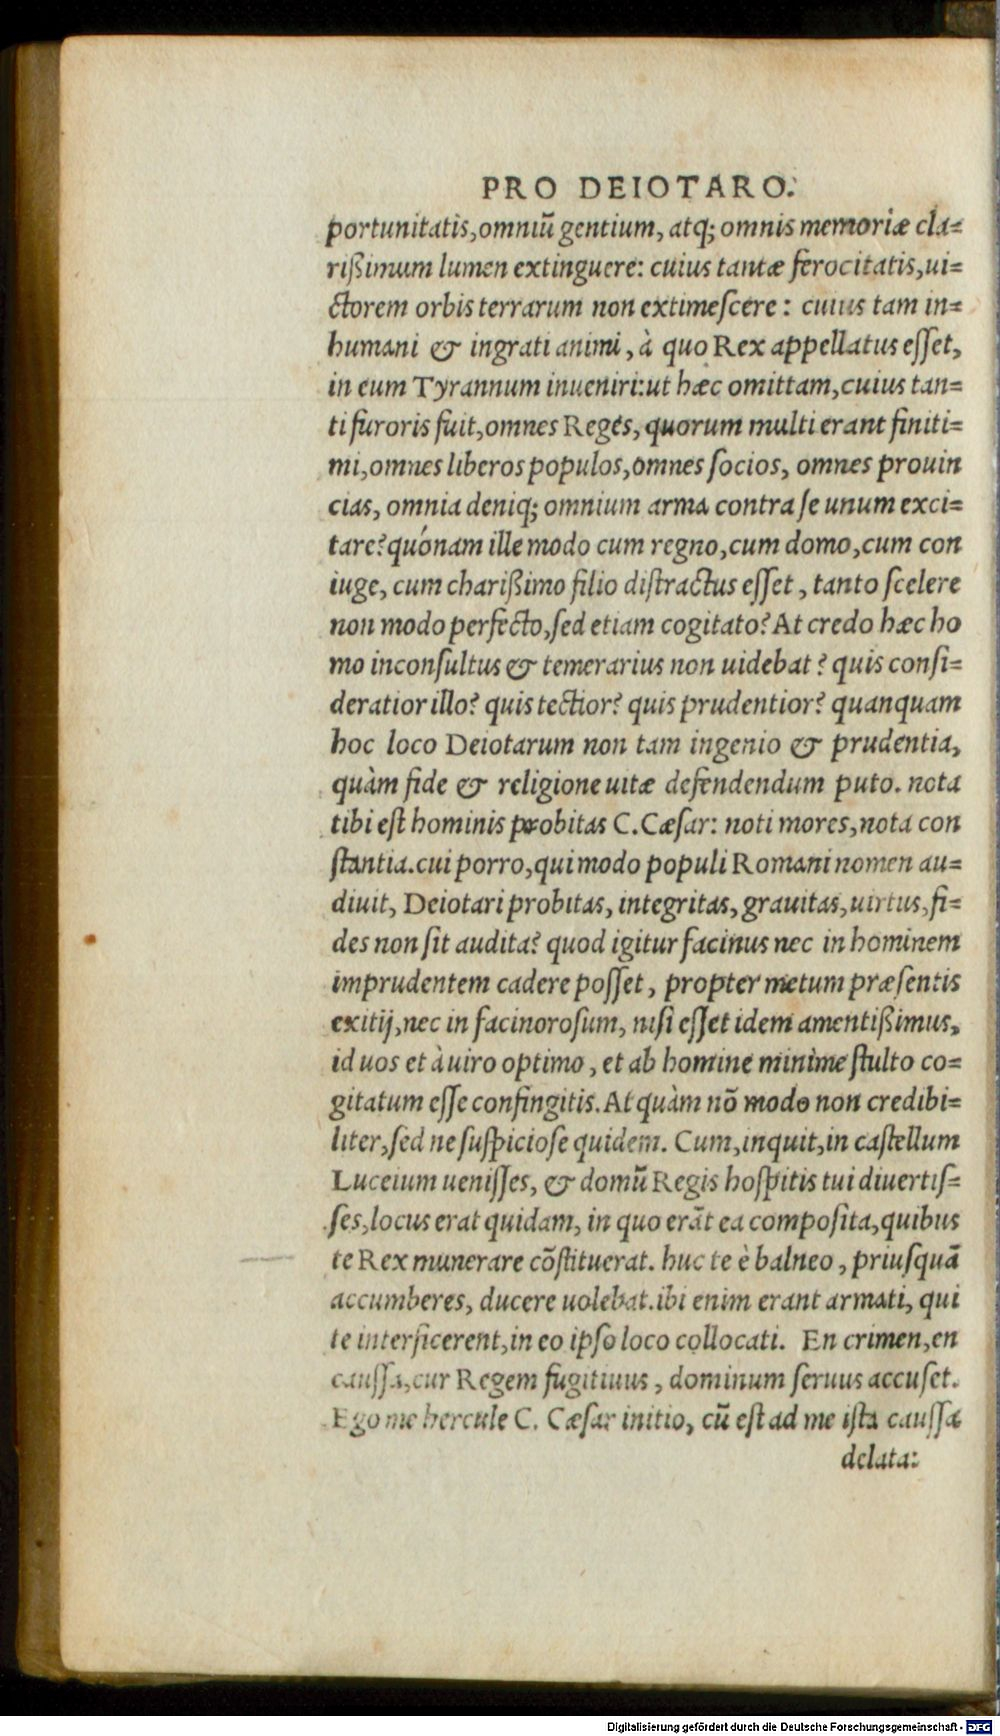 PRO DEIOTARO.
portunitatis, omniũ gentium, atq; omnis memoriæ cla=
rißimum lumen extinguere: cuius tantæ ferocitatis, ui=
ctorem orbis terrarum non extimeſcere: cuius tam in=
humani & ingrati animi, à quo Rex appellatus eſſet,
in eum Tyrannum inueniri: ut hæc omittam, cuius tan=
ti furoris fuit, omnes Reges, quorum multi erant finiti=
mi, omnes liberos populos, omnes ſocios, omnes prouin
cias, omnia deniq; omnium arma contra ſe unum exci=
tare? quónam ille modo cum regno, cum domo, cum con
iuge, cum charißimo filio diſtractus eſſet, tanto ſcelere
non modo perfecto, ſed etiam cogitato? At credo hæc ho
mo inconſultus & temerarius non uidebat? quis conſi=
deratior illo? quis tectior? quis prudentior? quanquam
hoc loco Deiotarum non tam ingenio & prudentia,
quàm fide & religione uitæ defendendum puto. nota
tibi eſt hominis probitas C. Cæſar: noti mores, nota con
ſtantia. cui porro, qui modo populi Romani nomen au=
diuit, Deiotari probitas, integritas, grauitas, uirtus, fi=
des non ſit audita? quod igitur facinus nec in hominem
imprudentem cadere poſſet, propter metum præſentis
exitij, nec in facinoroſum, niſi eſſet idem amentißimus,
id uos et à uiro optimo, et ab homine minìme ſtulto co=
gitatum eſſe confingitis. At quàm nõ modo non credibi=
liter, ſed ne ſuſpicioſe quidem. Cum, inquit, in caſtellum
Luceium ueniſſes, & domũ Regis hoſpitis tui diuertiſ=
ſes, locus erat quidam, in quo erãt ea compoſita, quibus
te Rex munerare cõſtituerat. huc te è balneo, priuſquã
accumberes, ducere uolebat. ibi enim erant armati, qui
te interficerent, in eo ipſo loco collocati. En crimen, en
cauſſa, cur Regem fugitiuus, dominum ſeruus accuſet.
Ego me hercule C. Cæſar initio, cũ eſt ad me iſta cauſſa
delata:
Digitalisierung gefördert durch die Deutsche Forschungsgemeinschaft - DFG